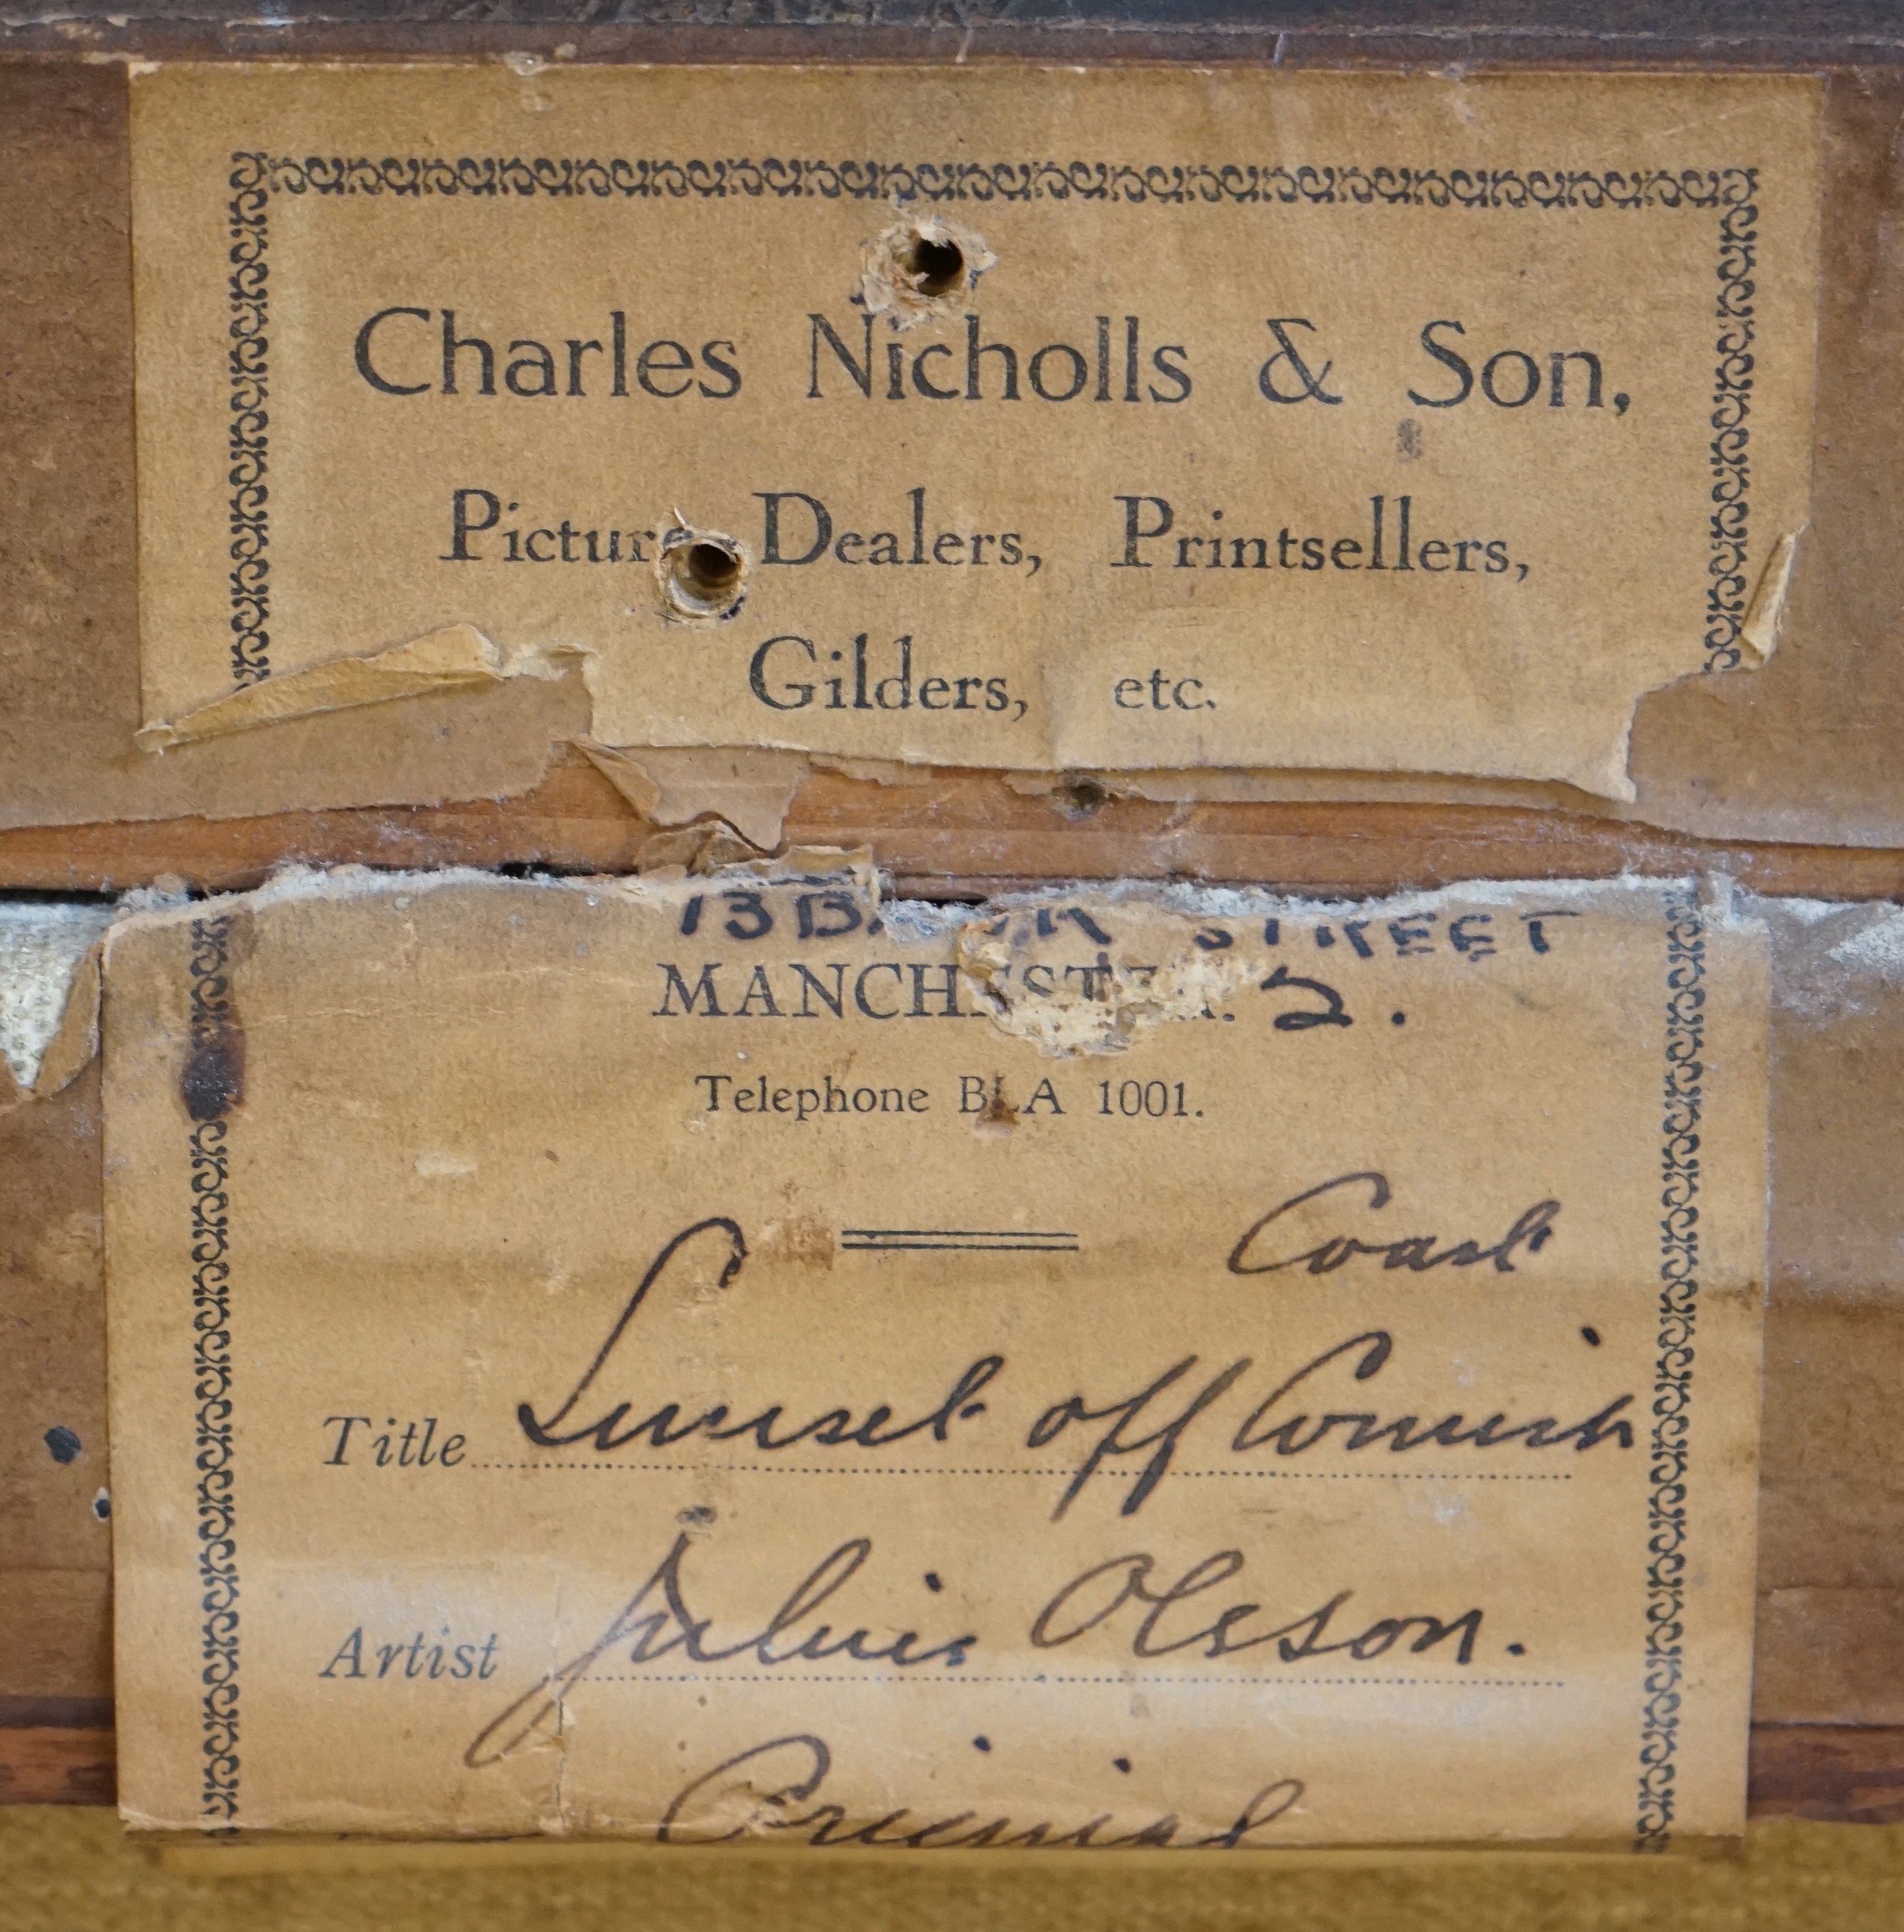 Charles Nicholls & Son,
Picture Dealers, Printsellers,
Gilders, etc.
STREET
MANCHESTER. 2.
Telephone BLA 1001.
Coast
Title Sunset off Cornish
Artist Julius Olsson.
Original